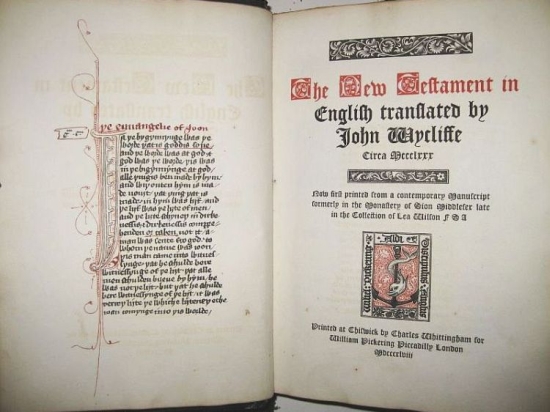 þe euuangelie of Joon
In þe bygynnynge was þe
worde þat is goddis sone
and þe worde was at god a
god was þe worde. þis was
in þe bygynnynge at god
alle þingis ben made by hym
and wiþouten hym is ma
de nouȝt: þat þing þat is
made. in hym was lyf. and
þe lyf was þe lyȝte of men.
and þe liȝt schyneþ in derke
nessis: & derkenessis compre-
henden or taken not it. a
man was sente fro god. to
whom þe name was ioon.
þis man came into witnes
synge. þat he schulde bere
witnessynge of þe liȝt. þat alle
men schulden bileue by hym. he
was not þe liȝt. but þat he schulde
bere witnessynge of þe liȝt. it was
verrey liȝt þe whiche liȝtneþ
man comynge into þis worlde.
The New Testament in
English translated by
John Wycliffe
Circa Mccclxxx
Now first printed from a contemporary Manuscript
formerly in the Monastery of Sion Middlesex late
in the Collection of Lea Wilson F S A
Printed at Chiswick by Charles Whittingham for
William Pickering Piccadilly London
Mdcccxlviii